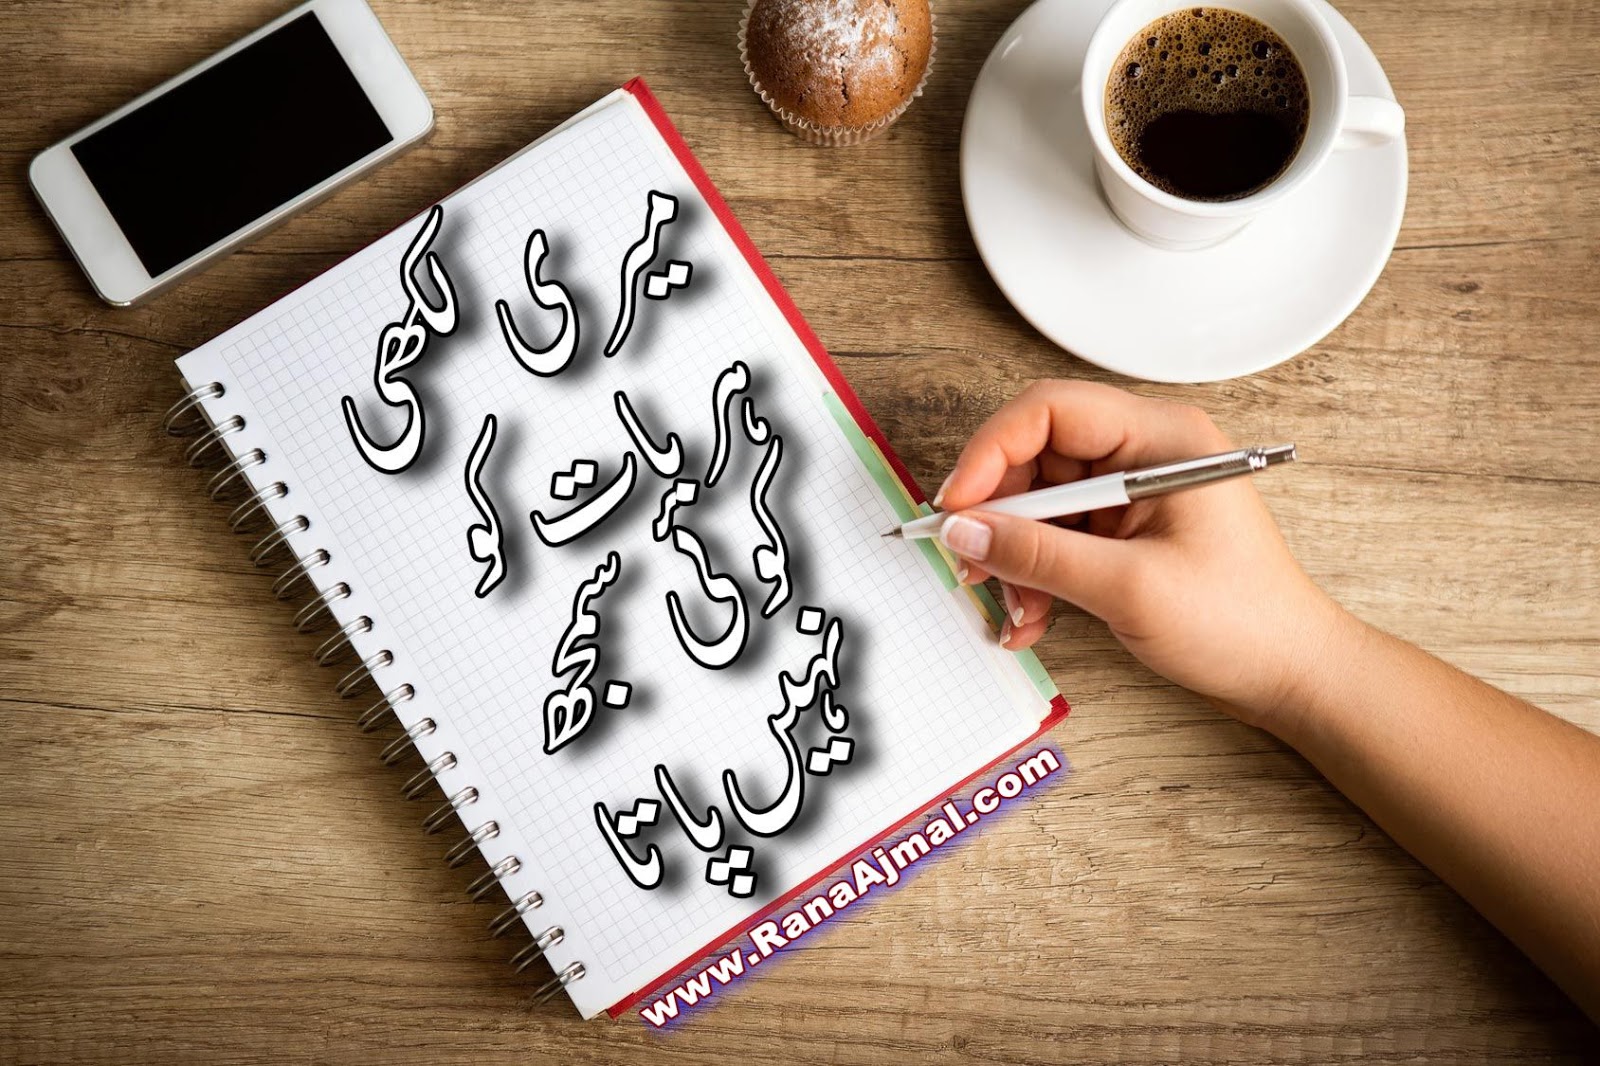 میری لکھی
ہر بات کو
کوئی سمجھ
نہیں پاتا
www.RanaAjmal.com